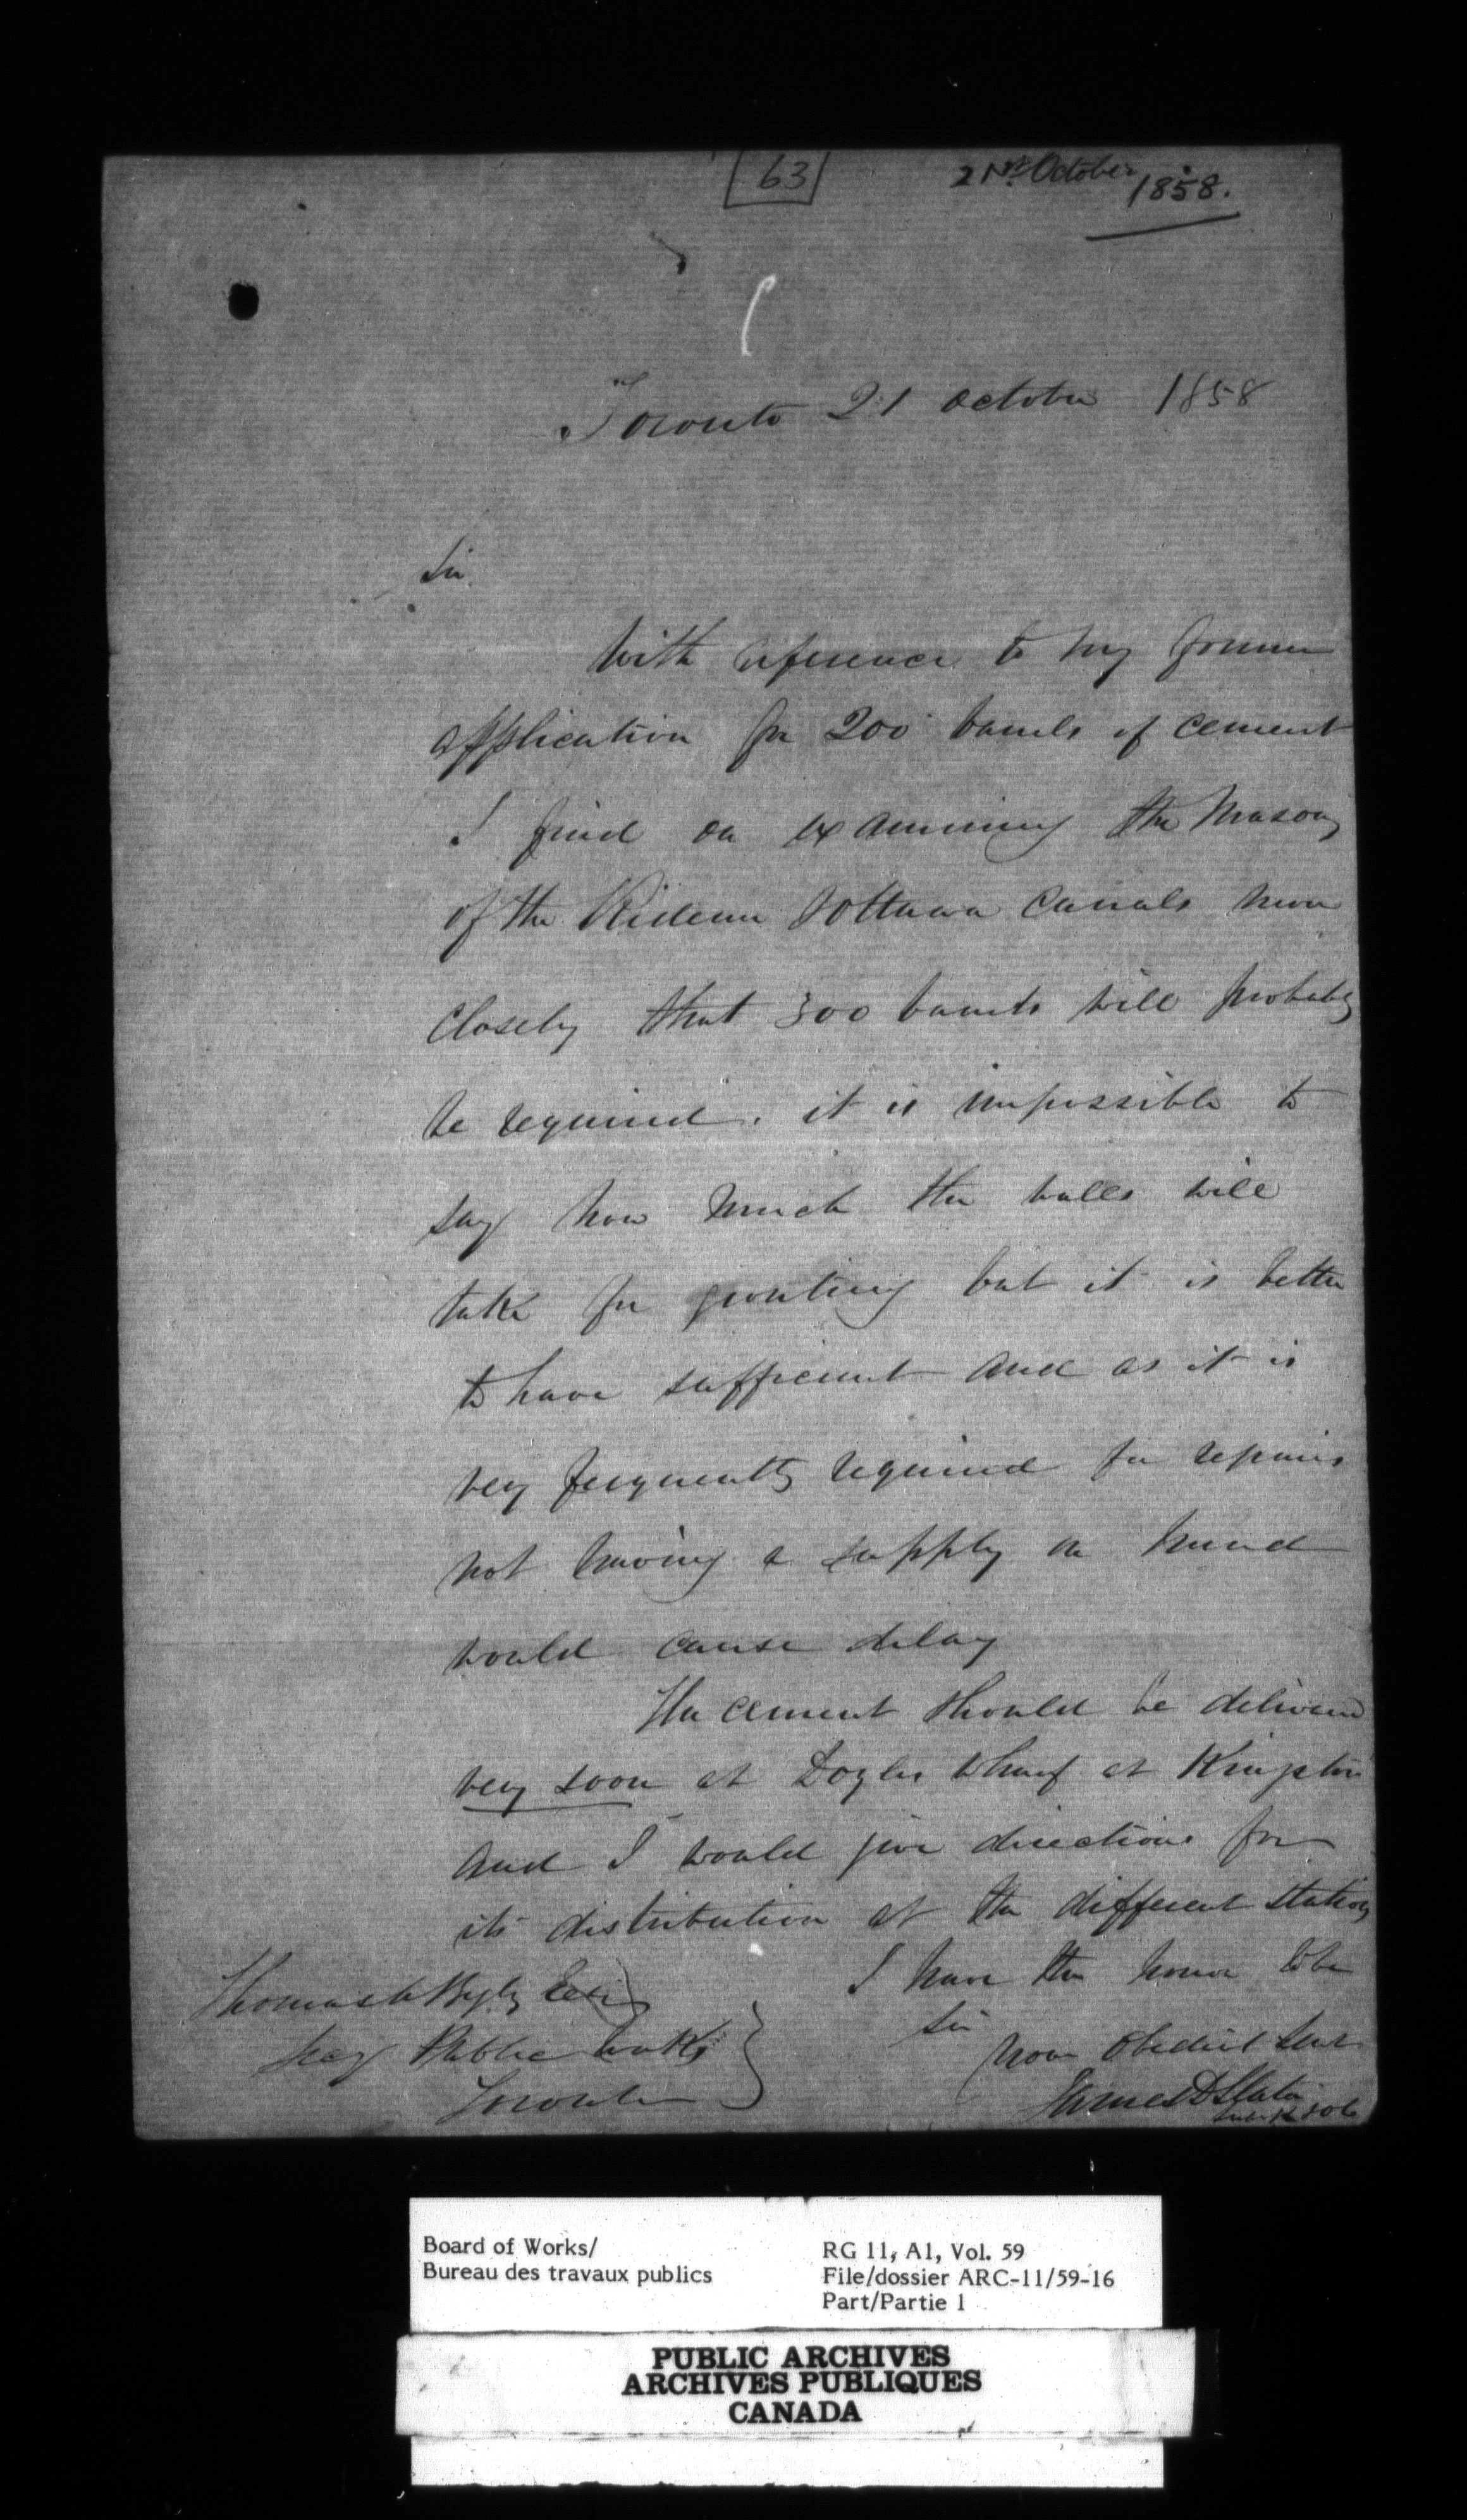 63
21st October
1858.
Toronto 21 October 1858
Sir
With reference to my former
application for 200 barrels of cement
I find on examining the Masonry
of the Rideau & Ottawa Canals more
closely that 300 barrels will probably
be required. it is impossible to
say how much the walls will
take for grouting but it is better
to have sufficient and as it is
very frequently required for repairs
not having a supply on hand
would cause delay
The cement should be delivered
very soon at Doyles Wharf at Kingston
and I would give directions for
its distribution at the different stations
I have the honor to be
Sir
Your Obedient Servt
James D Slater
Thomas A Begly Esq
Secy Public Works
Toronto
Board of Works/
Bureau des travaux publics
RG 11, A1, Vol. 59
File/dossier ARC-11/59-16
Part/Partie 1
PUBLIC ARCHIVES
ARCHIVES PUBLIQUES
CANADA